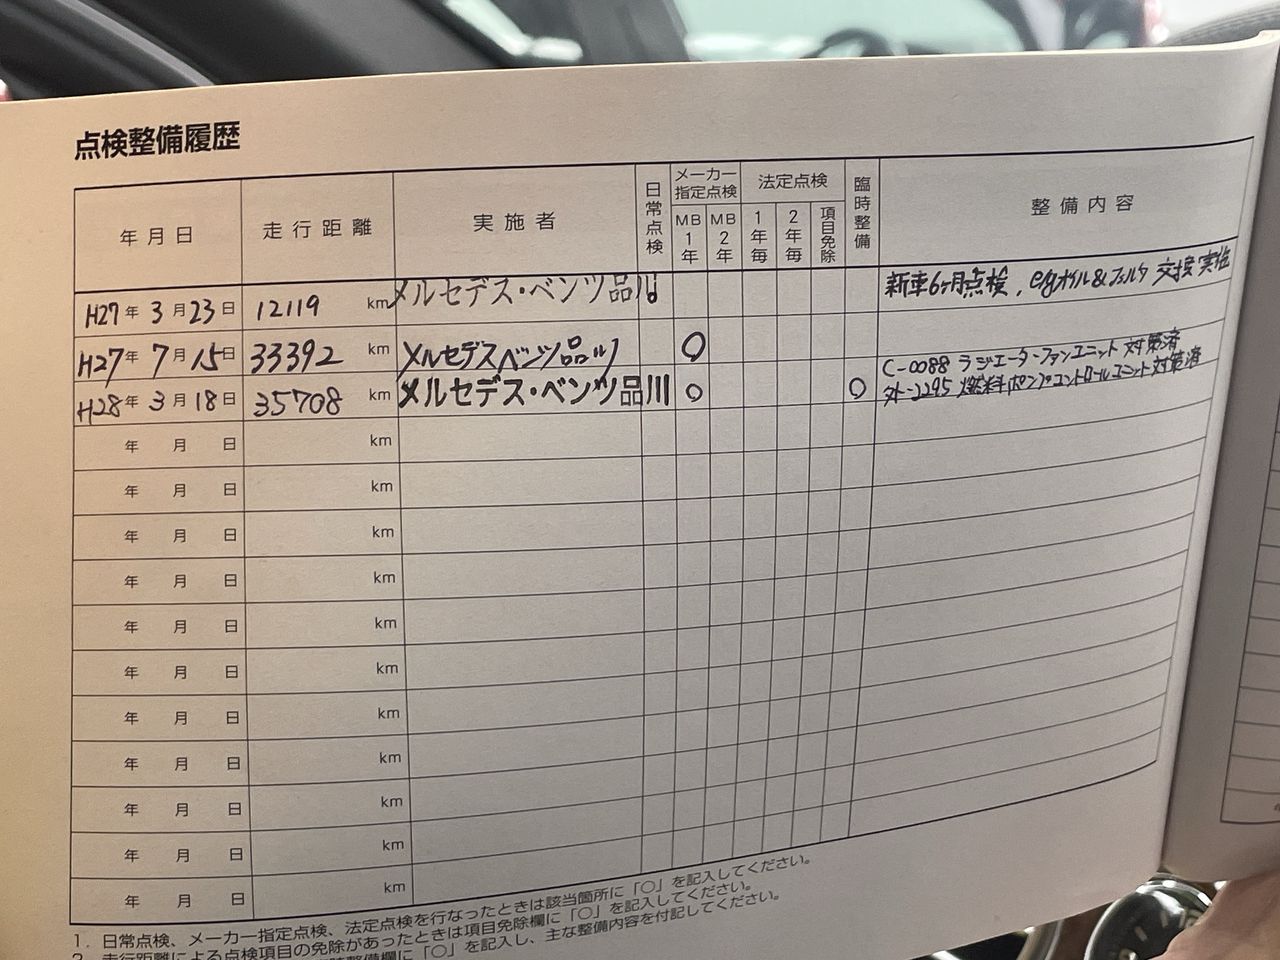 点検整備履歴
年月日 走行距離 実施者 日常点検 メーカー指定点検 MB1年 MB2年 法定点検 1年毎 2年毎 項目免除 臨時整備 整備内容
H27年 3月23日 12119 km メルセデス・ベンツ品川 新車6ヶ月点検、e/gオイル&フィルタ 交換 実施
H27年 7月15日 33392 km メルセデスベンツ品川 ○
C-0088 ラジエーターファンユニット 対策済
H28年 3月18日 35708 km メルセデス・ベンツ品川 ○ ○ 外-2295 燃料ポンプコントロールユニット対策済
年 月 日 km
年 月 日 km
年 月 日 km
年 月 日 km
年 月 日 km
年 月 日 km
年 月 日 km
年 月 日 km
年 月 日 km
年 月 日 km
年 月 日 km
1. 日常点検、メーカー指定点検、法定点検を行なったときは該当箇所に「○」を記入してください。
2. 走行距離による点検項目の免除があったときは項目免除欄に「○」を記入してください。
時整備欄に「○」を記入し、主な整備内容を付記してください。